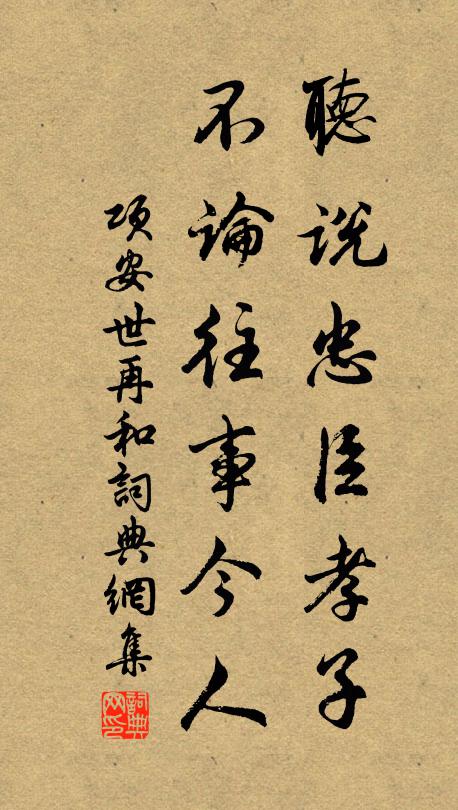 聽説忠臣孝子
不論往事今人
項安世再和詞典網集
詞典
网印